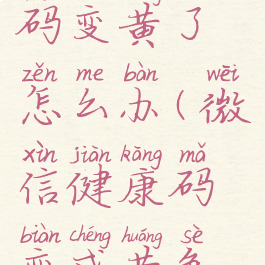 码变黄了
zěn me bàn wēi
怎么办(微
xìn jiàn kāng mǎ
信健康码
biàn chéng huáng sè
变成黄色